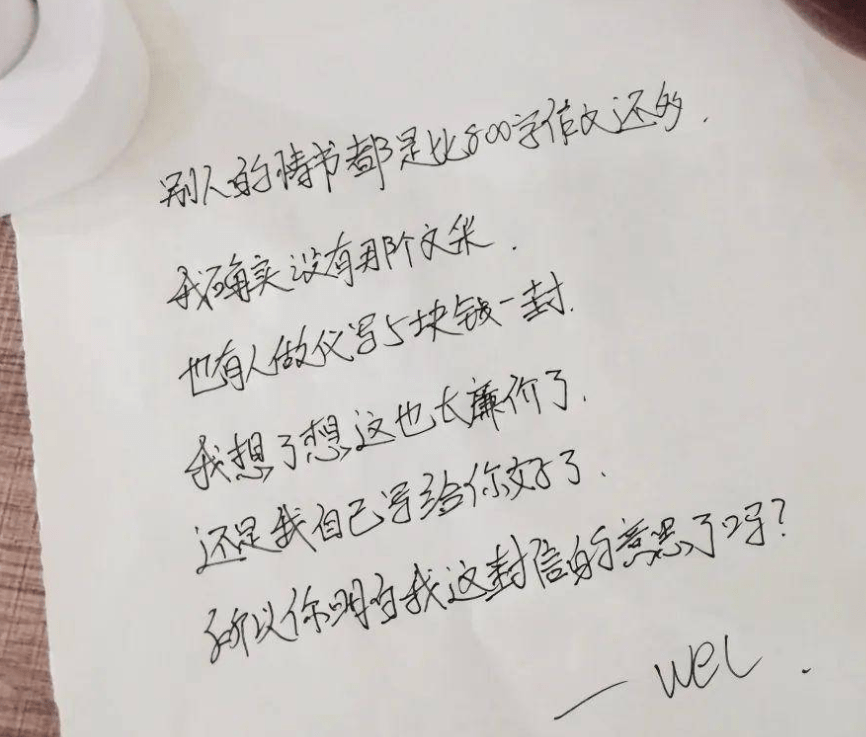 别人的情书都是比800字作文还多.
我确实没有那个文采.
也有人做代写5块钱一封.
我想了想这也太廉价了.
还是我自己写给你好了.
所以你明白我这封信的意思了吗?
— wel.